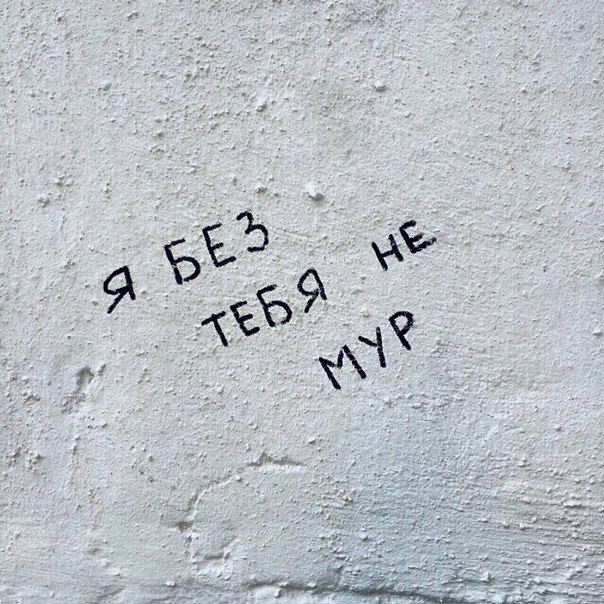 Я БЕЗ
ТЕБЯ НЕ
МУР